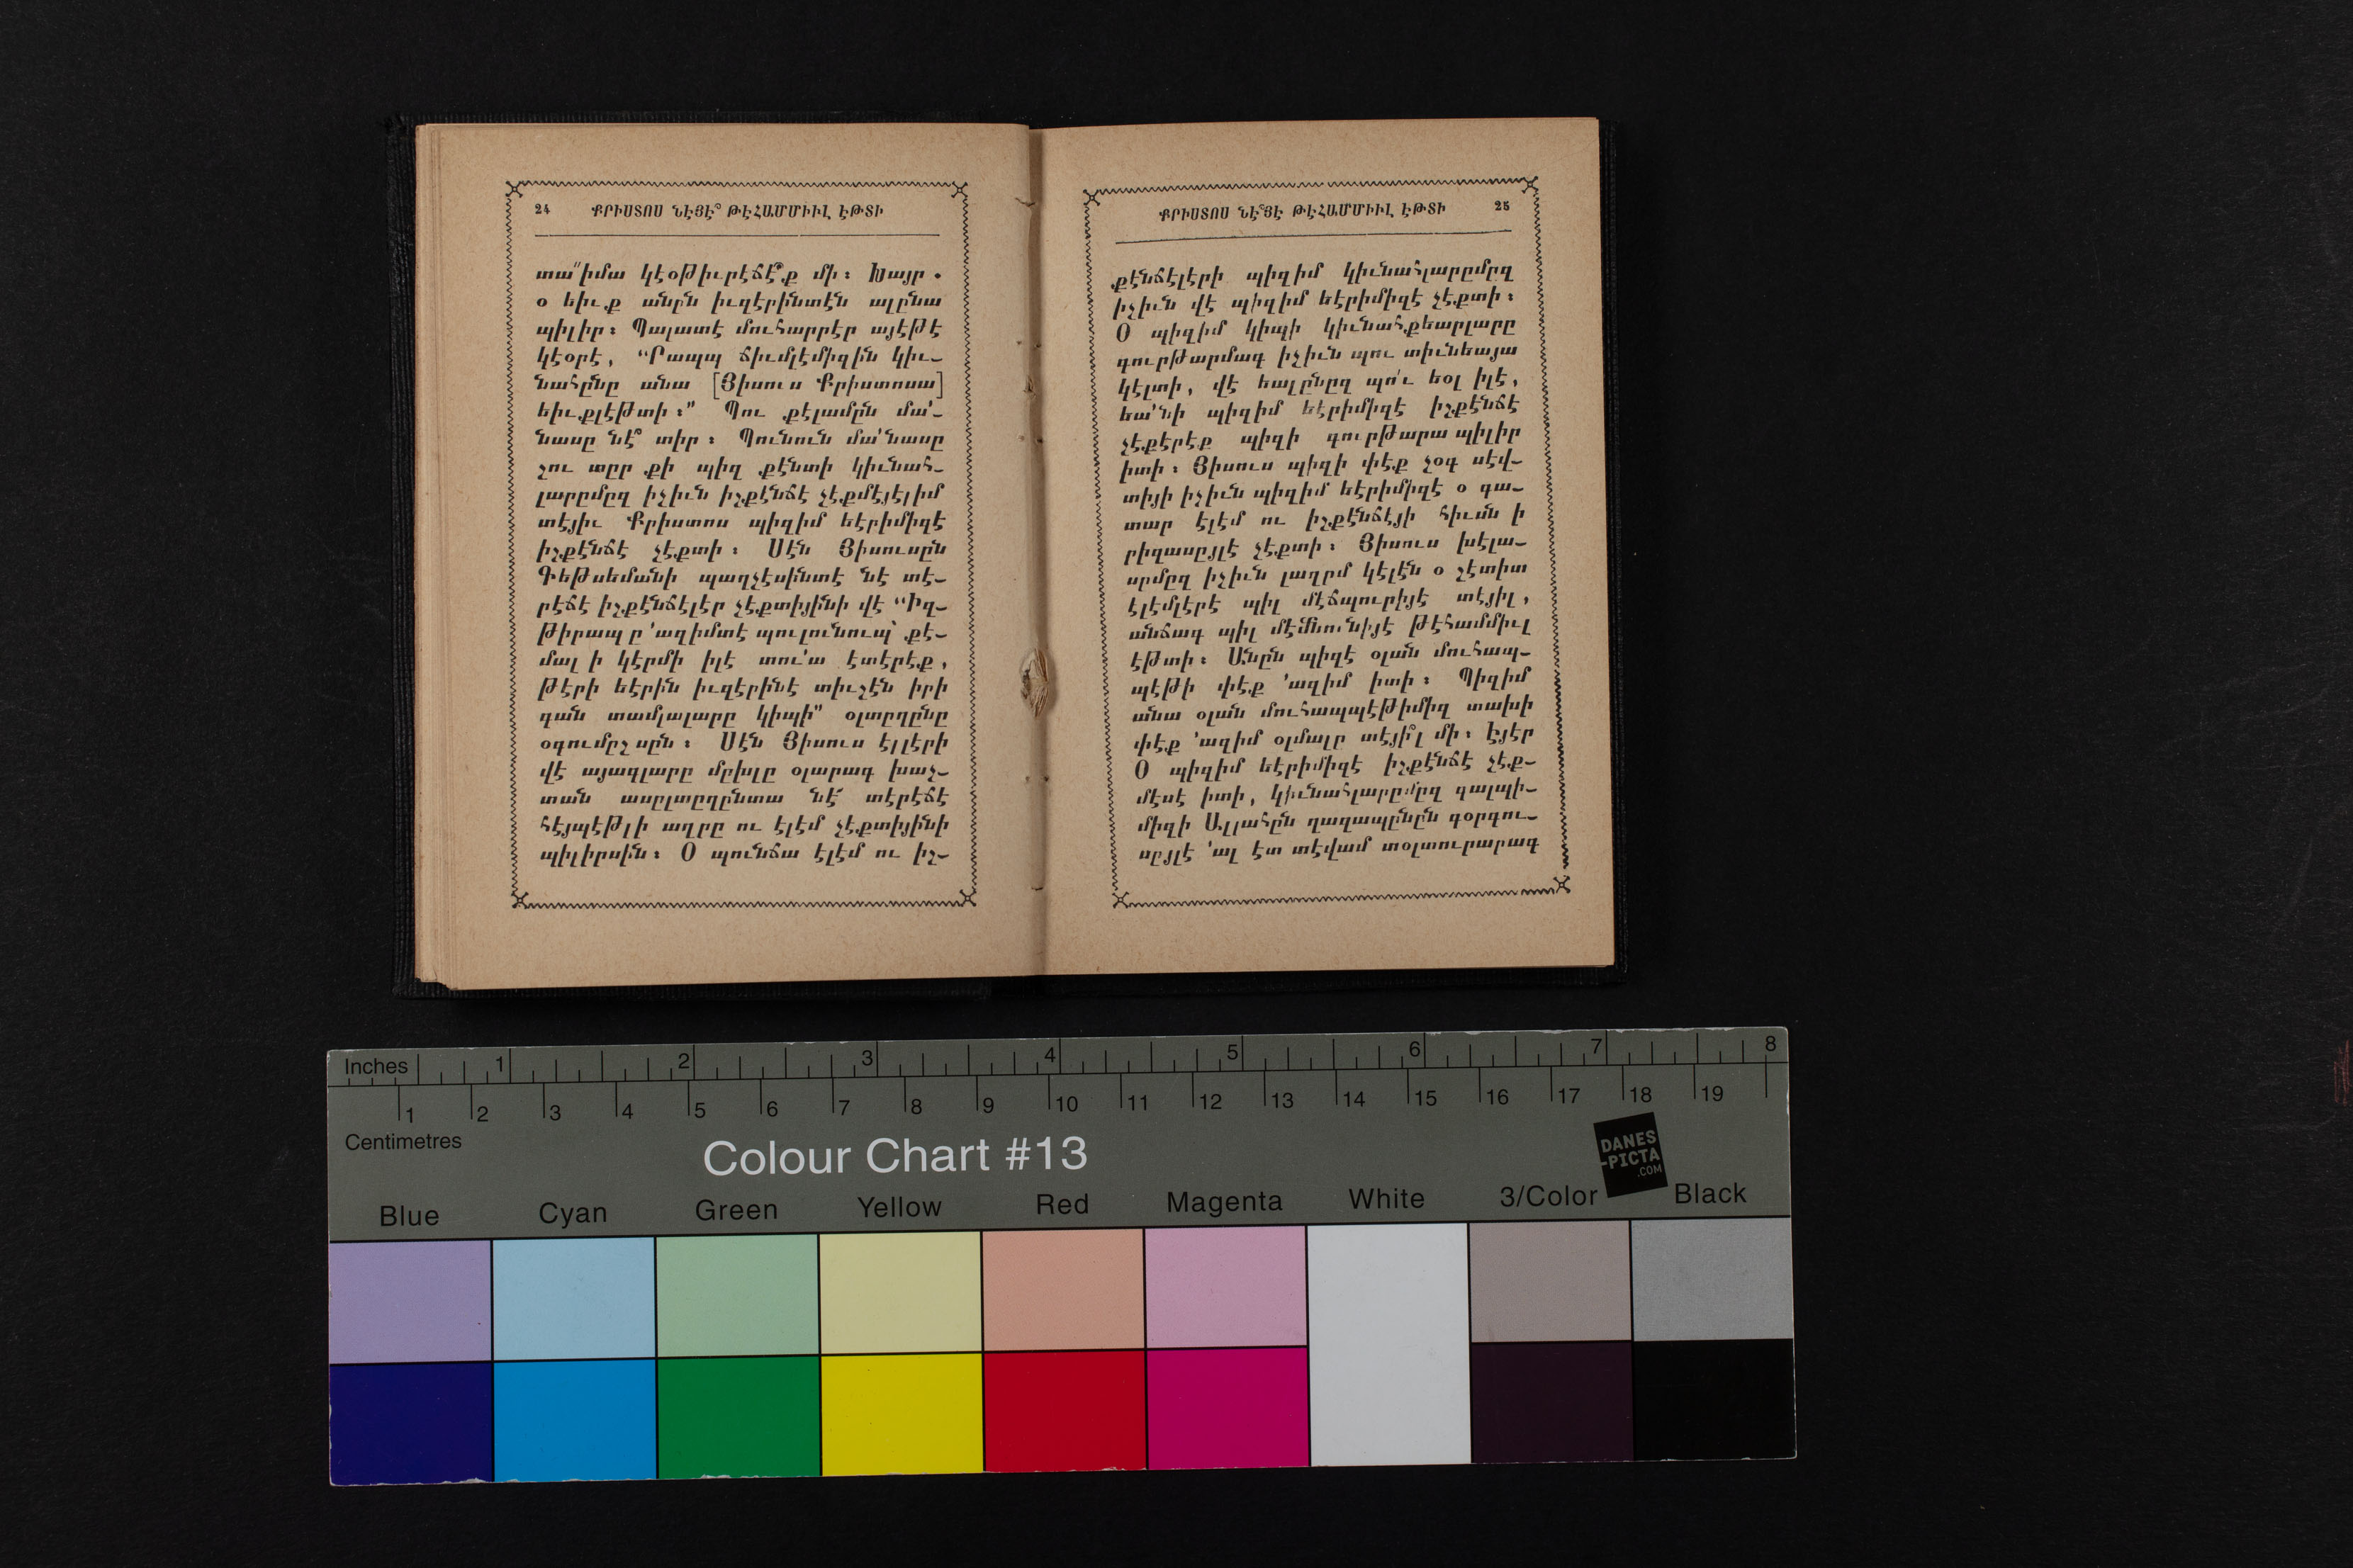 24 ՔՐԻՍՏՈՍ ՆԷՅԷ՞ ԹԷՀԱՄՄԻԻԼ ԷԹՏԻ
տա՛՛իմա կէօթիւրէճէ՞ք մի։ Խայր․
օ եիւք անըն իւզէրինտէն ալընա
պիլիր։ Պալատէ մուհարրէր այէթէ
կէօրէ, “Րապպ ճիւմլէմիզին կիւ-
նահընը անա [Յիսուս Քրիստոսա]
եիւքլէթտի։” Պու քէլամըն մա՛-
նասը նէ՞ տիր։ Պունուն մա՛նասը
շու տըր քի պիզ քէնտի կիւնահ-
լարըմըզ իչիւն իշքէնճէ չէքմէյէլիմ
տէյիւ Քրիստոս պիզիմ եէրիմիզէ
իշքէնճէ չէքտի։ Սէն Յիսուսըն
Գեթսեմանի պաղչէսինտէ նէ տէ-
րէճէ իշքէնճէլէր չէքտիյինի վէ “Իզ-
թիրապ ը ՚ազիմտէ պուլունուպ՝ քէ-
մալ ի կէրմի իլէ տու՚ա էտէրէք,
թէրի եէրին իւզէրինէ տիւշէն իրի
գան տամլալարը կիպի” օլտըղընը
օգումըշսըն։ Սէն Յիսուս էլլէրի
վէ այագլարը մըխլը օլարագ խաչ-
տան ասըլտըղընտա նէ՛ տէրէճէ
հէյպէթլի աղրը ու էլէմ չէքտիյինի
պիլիրսին։ Օ պունճա էլէմ ու իշ-
ՔՐԻՍՏՈՍ ՆԷ՞ՅԷ ԹԷՀԱՄՄԻԻԼ ԷԹՏԻ 25
քէնճէլէրի պիզիմ կիւնահլարըմըզ
իչիւն վէ պիզիմ եէրիմիզէ չէքտի։
Օ պիզիմ կիպի կիւնահքեարլարը
գուրթարմագ իչիւն պու տիւնեայա
կէլտի, վէ եալընըզ պո՛ւ եօլ իլէ,
եա՛նի պիզիմ եէրիմիզէ իշքէնճէ
չէքէրէք պիզի գուրթարա պիլիր
իտի։ Յիսուս պիզի փէք չօգ սէվ-
տիյի իչիւն պիզիմ եէրիմիզէ օ գա-
տար էլէմ ու իշքէնճէյի հիւսն ի
րիզասըյլէ չէքտի։ Յիսուս խէլա-
սըմըզ իչիւն լազըմ կէլէն օ շէտիտ
էլէմլէրէ պիլ մէճպուրիյէ տէյիլ,
անճագ պիլ մէմնունիյէ թէհամմիւլ
էթտի։ Անըն պիզէ օլան մուհապ-
պէթի փէք ՚ազիմ իտի։ Պիզիմ
անա օլան մուհապպէթիմիզ տախի
փէք ՚ազիմ օլմալը տէյի՞լ մի։ Էյէր
Օ պիզիմ եէրիմիզէ իշքէնճէ չէք-
մէսէ իտի, կիւնահլարըմըզ գալպի-
միզի Ալլահըն ղազապընըն գօրգու-
սըյլէ ՚ալ էտ տէվամ տօլտուրարագ
Inches 1 2 3 4 5 6 7 8
1 2 3 4 5 6 7 8 9 10 11 12 13 14 15 16 17 18 19
Centimetres
Colour Chart #13
DANES
-PICTA
.COM
Blue Cyan Green Yellow Red Magenta White 3/Color Black